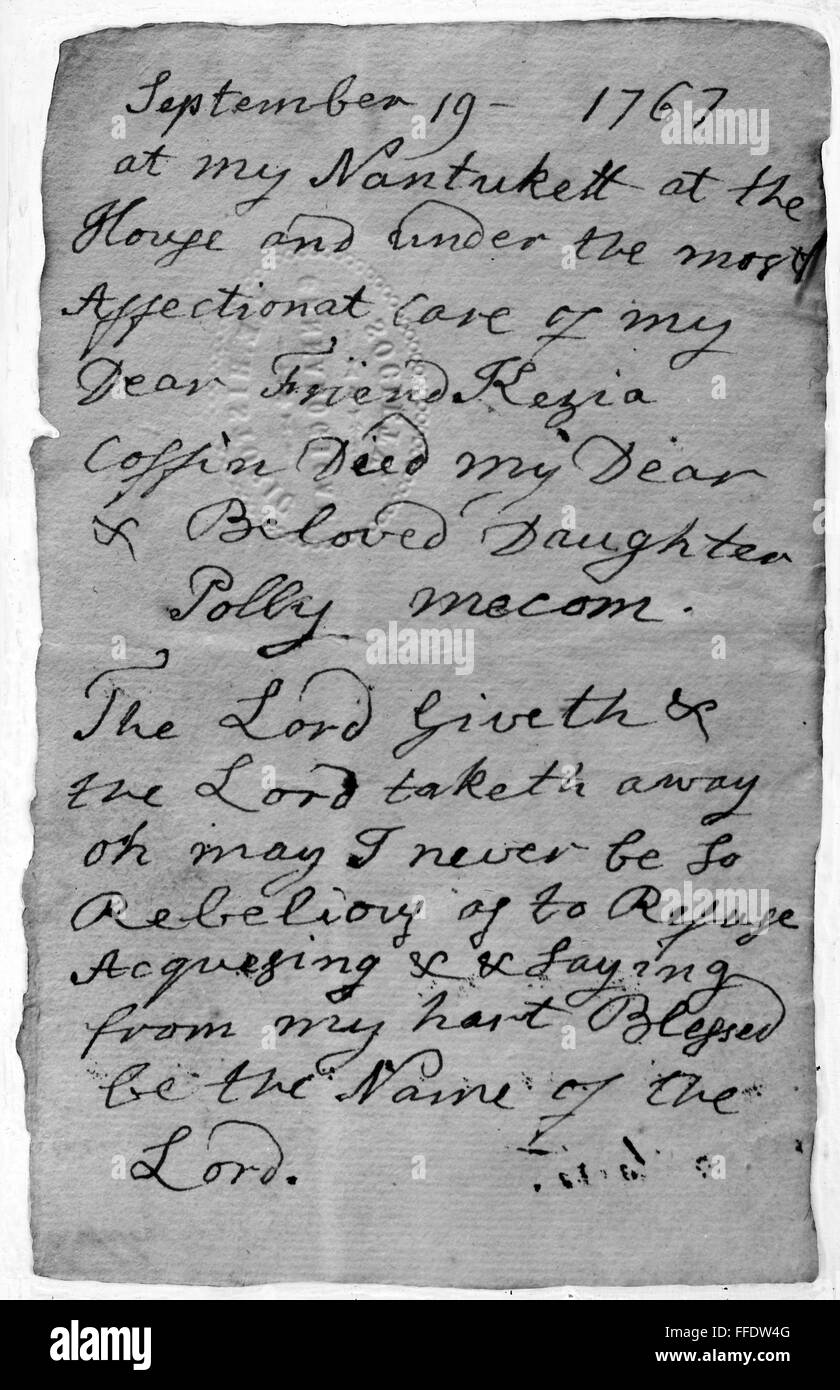 September 19 - 1767
at my Nantukett at the
House and under the most
Affectionat care of my
Dear Friend Kezia
Coffin Died my Dear
& Beloved Daughter
Polly mecom.
The Lord Giveth &
the Lord taketh away
oh may I never be so
Rebelious as to Refuse
Acquesing & & saying
from my hart Blessed
be the Name of the
Lord.
alamy
Image ID: FFDW4G
www.alamy.com